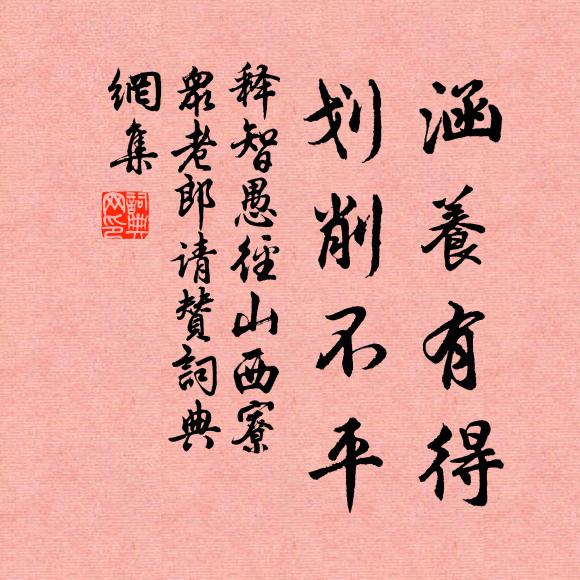 涵養有得
划削不平
释智愚徑山西寮
眾老郎请賛詞典
網集
詞典網印